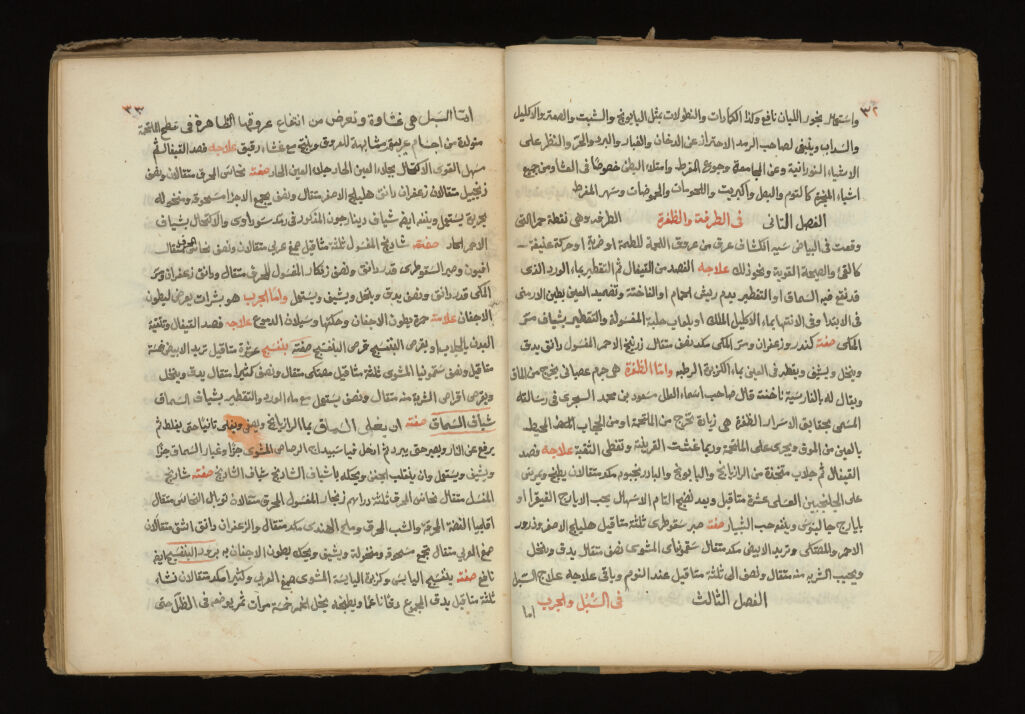 ٣٢
واستعمال بخور اللبان نافع وكذا الكمادات والنطولات بمثل البابونج والشبت والصعتر والاكليل
والسداب وينبغي لصاحب الرمد الاحتراز عن الدخان والغبار والبرد والحر والنظر على
الاشياء النورانية وعن المجامعة وجوع المفرط وامتلاء البطن خصوصا في العشاء ومن جميع
اشياء المبخرة كالثوم والبصل والكبريت والمحوضات وسهر المفرط
الفصل الثاني في الطرفة والظفرة الطرفه وهى نقطة حمرا التى
وقعت في البياض سببه انكشاف عرق من عروق الملتحمة للطمة او ضربة او حركة عنيفة
كالقئ والصيحة القوية ونحو ذلك علاجه الفصد من القيفال ثم التقطير بماء الورد الذى
قد نقع فيه السماق او التقطير بدم ريش الحمام او الفاختة وتضميد العين بطين الارمنى
في الابتدا وفي الانتها بماء الاكليل الملك او بلعاب حلبة المغسولة والتقطير بشياف مر
المكى صفته كندر وزعفران ومر المكى مكد نصف مثقال زرنيخ الاحمر المغسول دانق يدق
وينخل ويشيف ويقطر في العين بماء الكزبرة الرطبه واما الظفرة هى جرم عصبانى يخرج من الماق
ويقال له بالفارسية ناخنه قال صاحب اسماء العلل مسعود بن محمد السجزى في رسالته
المسمى بحقايق الاسرار الظفرة هى زيادة تخرج من الملتحمة او من الحجاب الملتف المحيط
بالعين من الموق ويجرى على الملتحمة وربما غشت القرنية وتغطى الثقبة علاجه فصد
القيفال ثم جلاب متخذة من الرازيانج والبابونج والبادرنجبويه مكد مثقالان يطبخ ويمرس
على الجلنجبين العسلى عشرة مثاقيل وبعد نضج التام الاسهال بحب الايارج الفيقرا او
بايارج جالينوس وينفع حب الشبيار صفته صبر سقوطرى ثلثة مثاقيل هليلج الاصفر وذرور
الاحمر والمصتكى وتربد الابيض مكد مثقال سقمونياى المشوى نصف مثقال يدق وينخل
ويحبب الشربة منه مثقال ونصف الى ثلثة مثاقيل عند النوم وباقى علاجه علاج السبل
الفصل الثالث في السبل والجرب
اما
٣٣
اما السبل هى غشاوة وتعرض من انتفاخ عروقها الظاهرة في سطح الملتحمة
متولدة من اجسام غريبة مشابهة للعروق وينتج مع غشاء رقيق علاجه فصد القيفال ثم
مسهل القوى الاكتحال بجلاء العين الحار جلاء العين الحار صفته نحاس المحرق مثقالان ونصف
زنجبيل مثقالان زعفران دانق هليلج الاصفر مثقال ونصف يجمع الاجزا مسحوقة ومنخوله
بحريرة يستعمل وينفع ايضا شياف دينارجون المذكور في رمد سوداوى والاكتحال بشياف
الاحمر الحاد صفته شاذنج المغسول ثلثة مثاقيل صمغ عربى مثقالان ونصف نحاس المحرق مثقال
افيون وصبر السقوطرى قدر دانق ونصف زنكار المغسول المحرق مثقال ودانق زعفران ومر
المكى قدر دانق ونصف يدق وينخل ويشيف ويستعمل واما الجرب هو بثرات يعرض لبطون
الاجفان علامته حمرة بطون الاجفان وحكتها وسيلان الدموع علاجه فصد القيفال وتنقية
البدن بالجلاب او بقرص البنفسج قرص البنفسج صفته بنفسج عشرة مثاقيل تربد الابيض خمسة
مثاقيل ونصف سقمونيا المشوى ثلثة مثاقيل مصتكى مثقال ونصف كثيرا مثقال يدق وينخل
ويقرص اقراص الشربة منه مثقال ونصف يستعمل مع ماء الورد والتقطير بشياف السماق
شياف السماق صفته ان يغلى السماق بماء الرازيانج ويصفى ويغلى ثانيا حتى يغلظ ثم
يرفع عن النار ويصبر حتى يبرد ثم ادخل فيها سبيداج الرصاص المشوى جزؤ وغبار السماق جزؤ
ويشيف ويستعمل وان ينقلب الجفن ويحكه باشياف الشاذنج شياف الشاذنج صفته شاذنج
المغسل مثقال نحاس المحرق ثلثة دراهم زنجار المغسول المحرق مثقالان توبال النحاس مثقال
اقليميا الفضة المحرقة والشب المحرق وملح الهندى مكد مثقال والزعفران دانق اشق مثقالان
صمغ العربى مثقال يجمع مسحوقة ومنخولة ويشيف ويحك بطون الاجفان به برود البنفسج ايضا
نافع صفته بنفسج اليابس وكزبرة اليابسة المشوى صمغ العربى وكثيرا مكد مثقالان نشاء
ثلثة مثاقيل يدق المجموع دقا ناعما ويطبخه بخل الخمر خمسة مرات ثم يوضع في الظل حتى